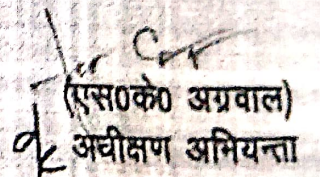 (एस0के0 अग्रवाल)
अधीक्षण अभियन्ता